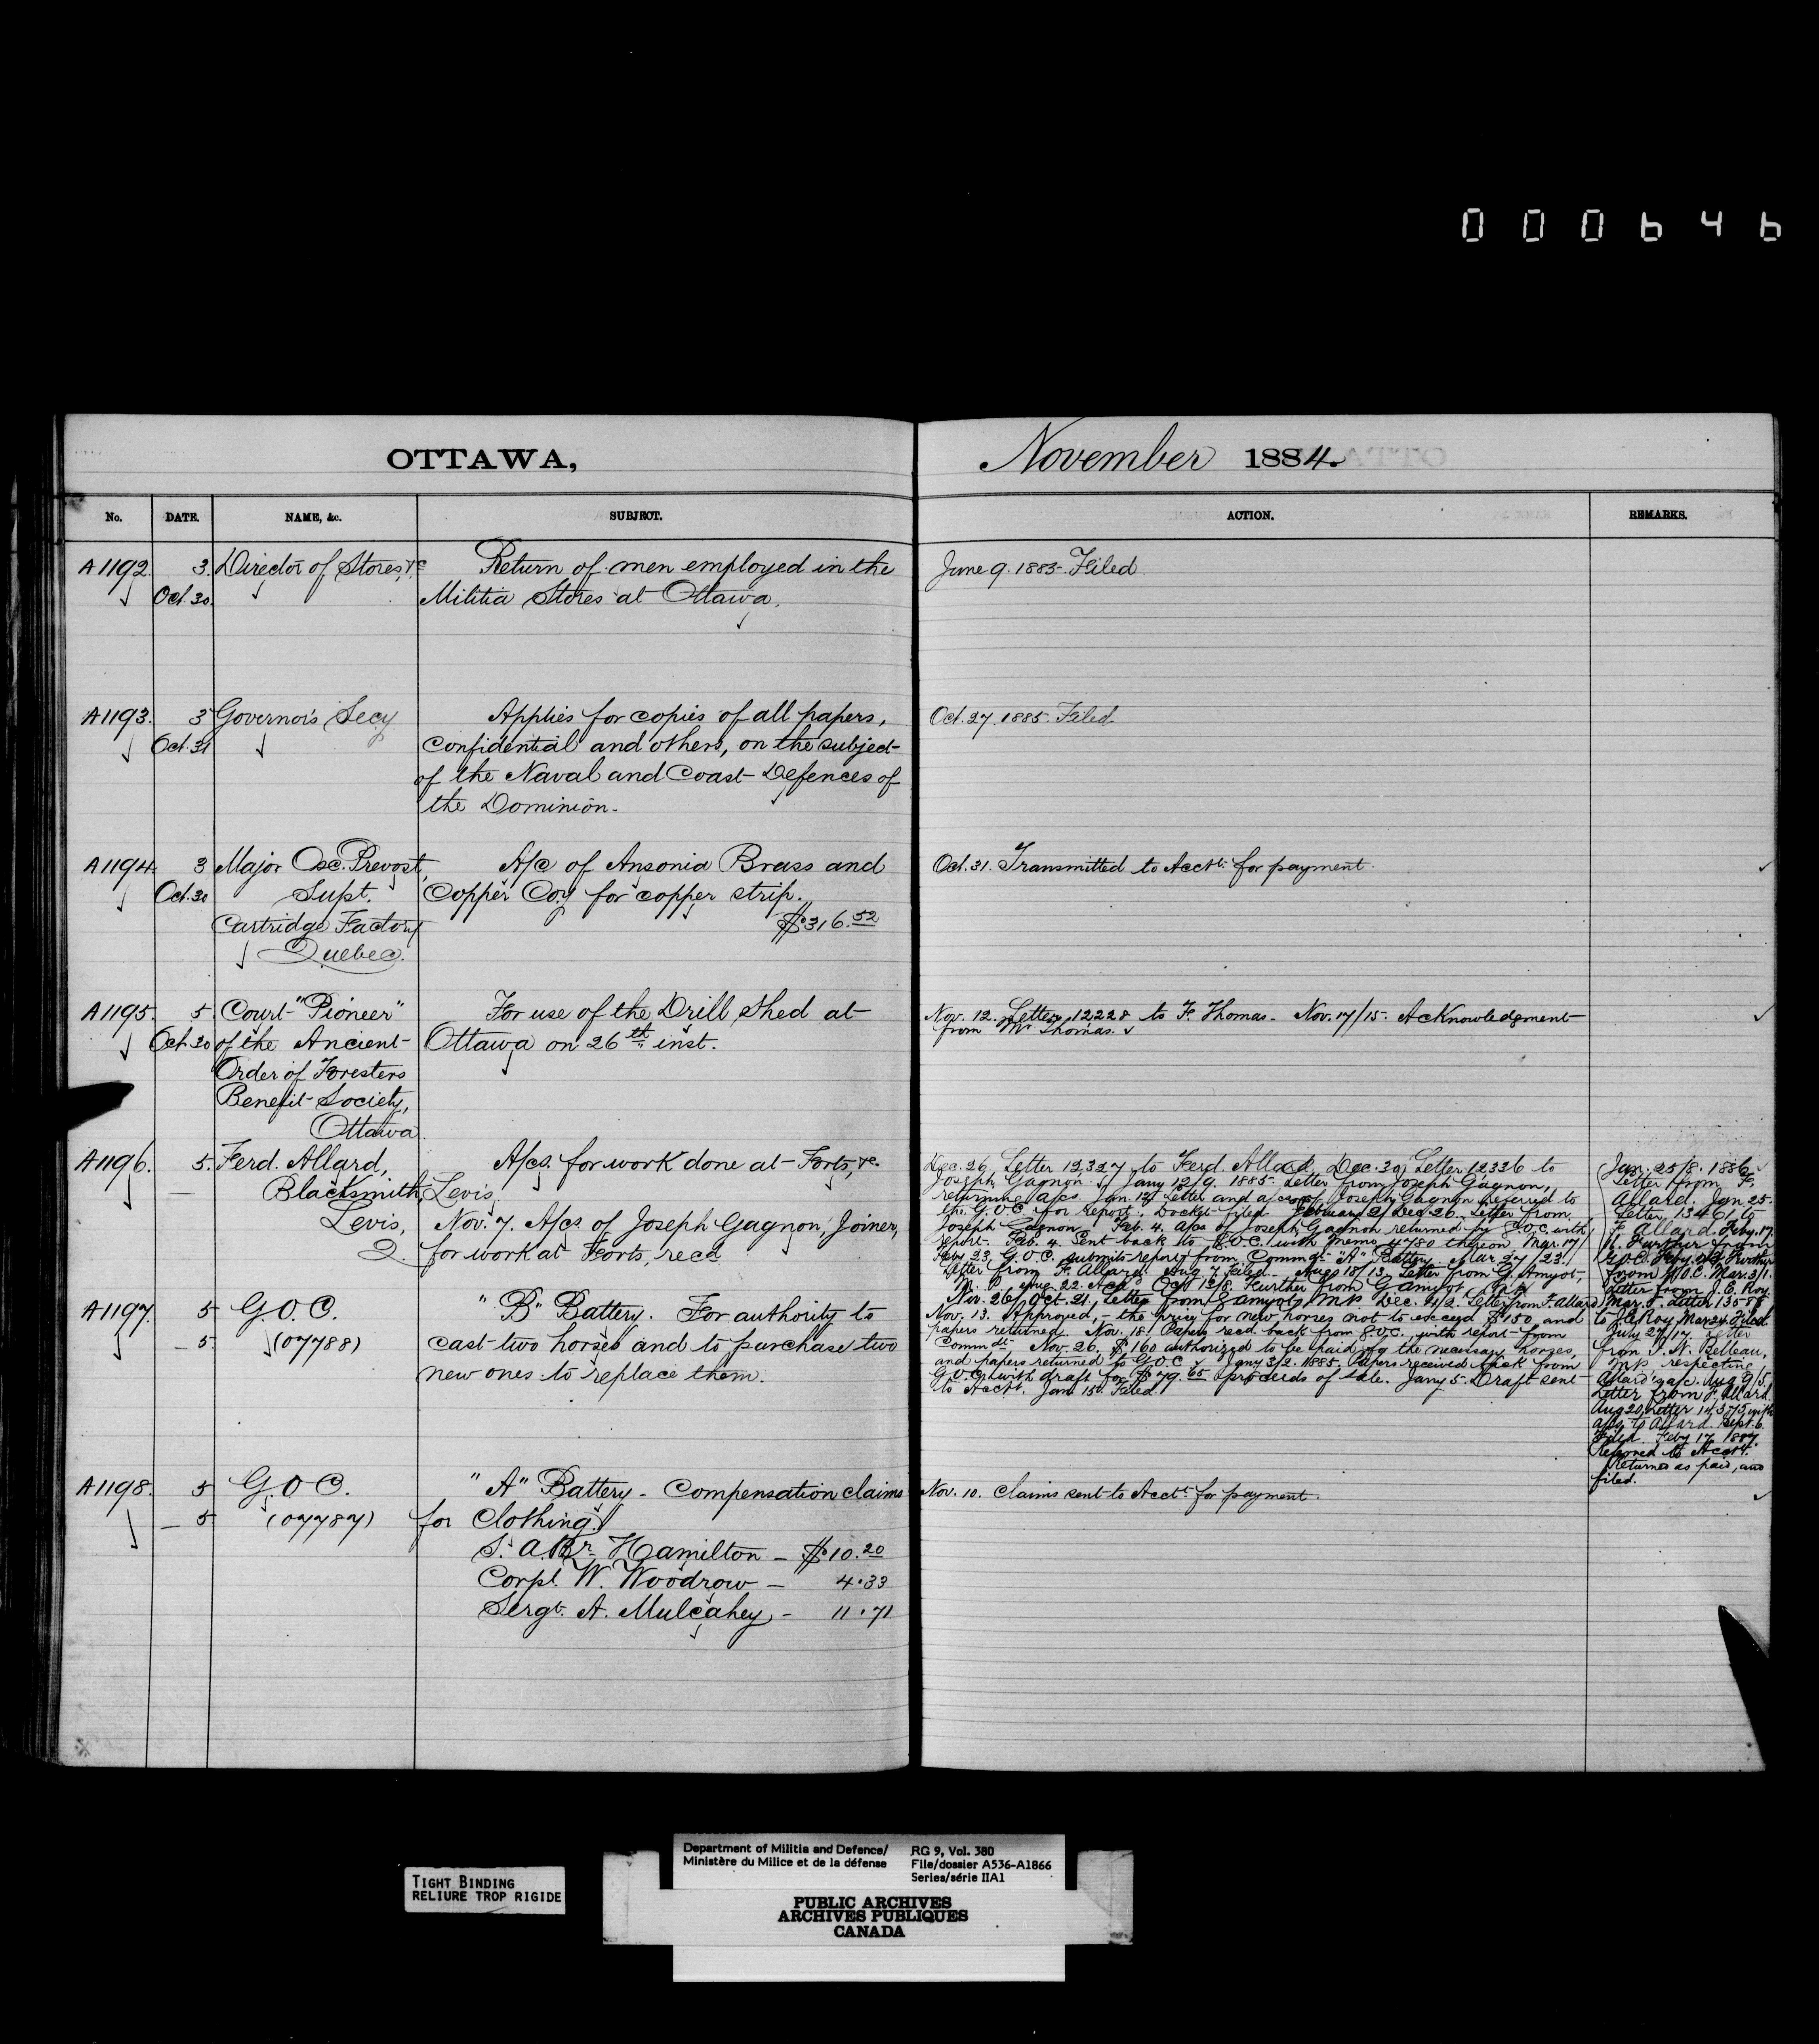 000646
OTTAWA,
November 1884.
No. DATE. NAME, &c. SUBJECT. ACTION. REMARKS.
A1192. 3. Director of Stores, &c Return of men employed in the
Oct. 30. Militia Stores at Ottawa.
June 9. 1885. Filed
A1193. 3 Governor's Secy Applies for copies of all papers,
Oct. 31 confidential and others, on the subject
of the Naval and Coast Defences of
the Dominion.
Oct. 27. 1885. Filed
A1194 3 Major Osc. Prevost, A/c of Ansonia Brass and
Oct. 30 Supt. Copper Coy for copper strip.
Cartridge Factory $316.52
Quebec.
Oct. 31. Transmitted to Acctt. for payment.
A1195. 5. Court "Pioneer" For use of the Drill Shed at
Oct 30 of the Ancient Ottawa on 26th inst.
Order of Foresters
Benefit Society,
Ottawa.
Nov. 12. Letter 12228 to F. Thomas. Nov. 17/15. Acknowledgment
from Mr. Thomas.
A1196. 5. Ferd. Allard, A/cs. for work done at Forts, &c.
Blacksmith, Levis,
Levis, Nov. 7. A/cs. of Joseph Gagnon, Joiner,
Q. for work at Forts, recd
Dec. 26, Letter 12327 to Ferd. Allard. Dec. 30, Letter 12336 to
Joseph Gagnon. Jany 12/9. 1885. Letter from Joseph Gagnon,
returning a/cs. Jan. 12, Letter and a/cs of Joseph Gagnon referred to
the G.O.C. for report. Docket filed February 2/ Dec 26. Letter from
Joseph Gagnon. Feb. 4. A/cs of Joseph Gagnon returned by G.O.C. with
report. Feb. 4. Sent back to G.O.C. with memo 4780 thereon. Mar. 17/
Feby 23. G.O.C. submits report from Commdt. "A" Battery. Mar 27/23.
Letter from F. Allard. Aug 7 Filed. Aug 18/13. Letter from G. Amyot,
M.P. Aug. 22. Ackd. Oct 12/8. Further from G Amyot
Nov. 26/Oct. 21. Letter from G Amyot, M.P. Dec. 4/2. Letter from F. Allard
Jan. 25/8. 1886.
Letter from F.
Allard. Jan 25.
Letter 13461 to
F. Allard. Feby. 17.
Further from
G.O.C. Further
from G.O.C. Mar. 3/1.
Letter from J. E. Roy.
Mar. 5. Letter 13588
to J. E. Roy Mar 24. Filed
July 27/17. Letter
from I. N. Belleau,
M.P. respecting
Allard's a/c. Aug 9/5.
Letter from F. Allard.
Aug 20, Letter 14375 with
a/cs to Allard. Sept. 6.
Filed. Feby 17 1887.
Referred to Acctt.
Returned as paid, and
filed.
A1197. 5 G.O.C. "B" Battery. For authority to
5. (07788) cast two horses and to purchase two
new ones to replace them.
Nov. 13. Approved, - the price for new horses not to exceed $150, and
papers returned. Nov. 18. Papers recd back from G.O.C., with report from
Commdt. Nov. 26. $160 authorized to be paid for the necessary horses,
and papers returned to G.O.C. Jany 3/2. 1885. Papers received back from
G.O.C. with draft for $79.65 proceeds of sale. Jany 5. Draft sent
to Acctt. Jan 15. Filed.
A1198. 5 G.O.C. "A" Battery - Compensation claims
5 (07787) for Clothing.
S. A. Br. Hamilton - $10.20
Corpl. W. Woodrow - 4.33
Sergt. A. Mulcahey - 11.71
Nov. 10. Claims sent to Acctt. for payment.
TIGHT BINDING
RELIURE TROP RIGIDE
Department of Militia and Defence/
Ministère du Milice et de la défense
RG 9, Vol. 380
File/dossier A536-A1866
Series/série IIA1
PUBLIC ARCHIVES
ARCHIVES PUBLIQUES
CANADA